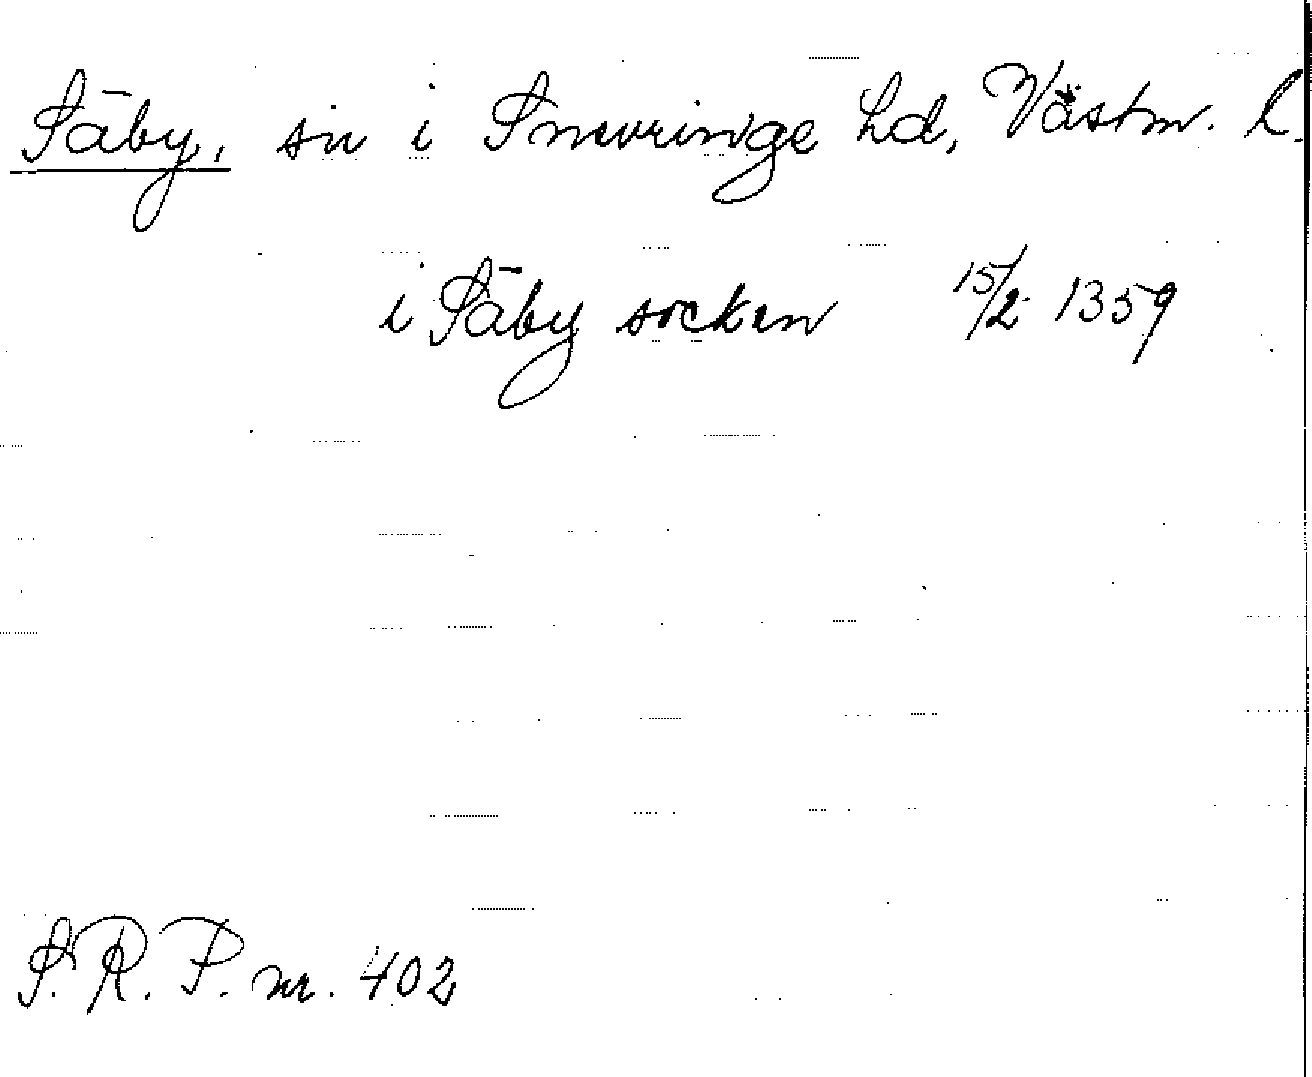 Säby, sn i Snevringe hd, Västm. l.
i Säby socken 15/2 1359
S.R.P. nr. 402